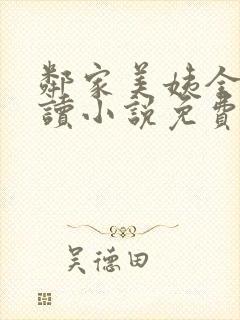 鄰家美姨全
讀小説免費
吴德田